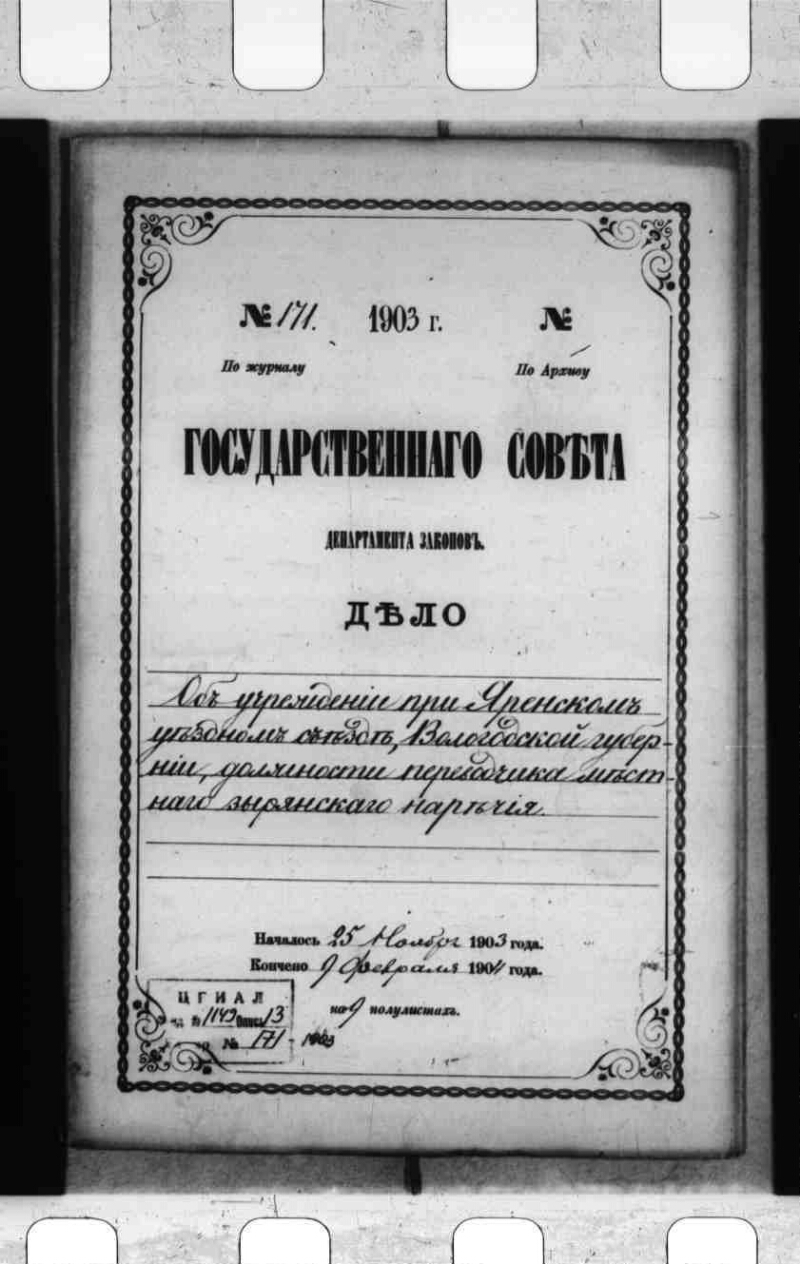 № 171. 1903 г. №
По журналу По Архиву
ГОСУДАРСТВЕННАГО СОВѢТА
ДЕПАРТАМЕНТА ЗАКОНОВЪ.
ДѢЛО
Объ учрежденіи при Яренскомъ
уѣздномъ съѣздѣ, Вологодской губер-
ніи, должности переводчика мѣст-
наго зырянскаго нарѣчія.
Началось 25 Ноября 1903 года.
Кончено 9 Февраля 1904 года.
на 9 полулистахъ.
ЦГИАЛ
№ 1149 Опись 13
№ 171 - 1903